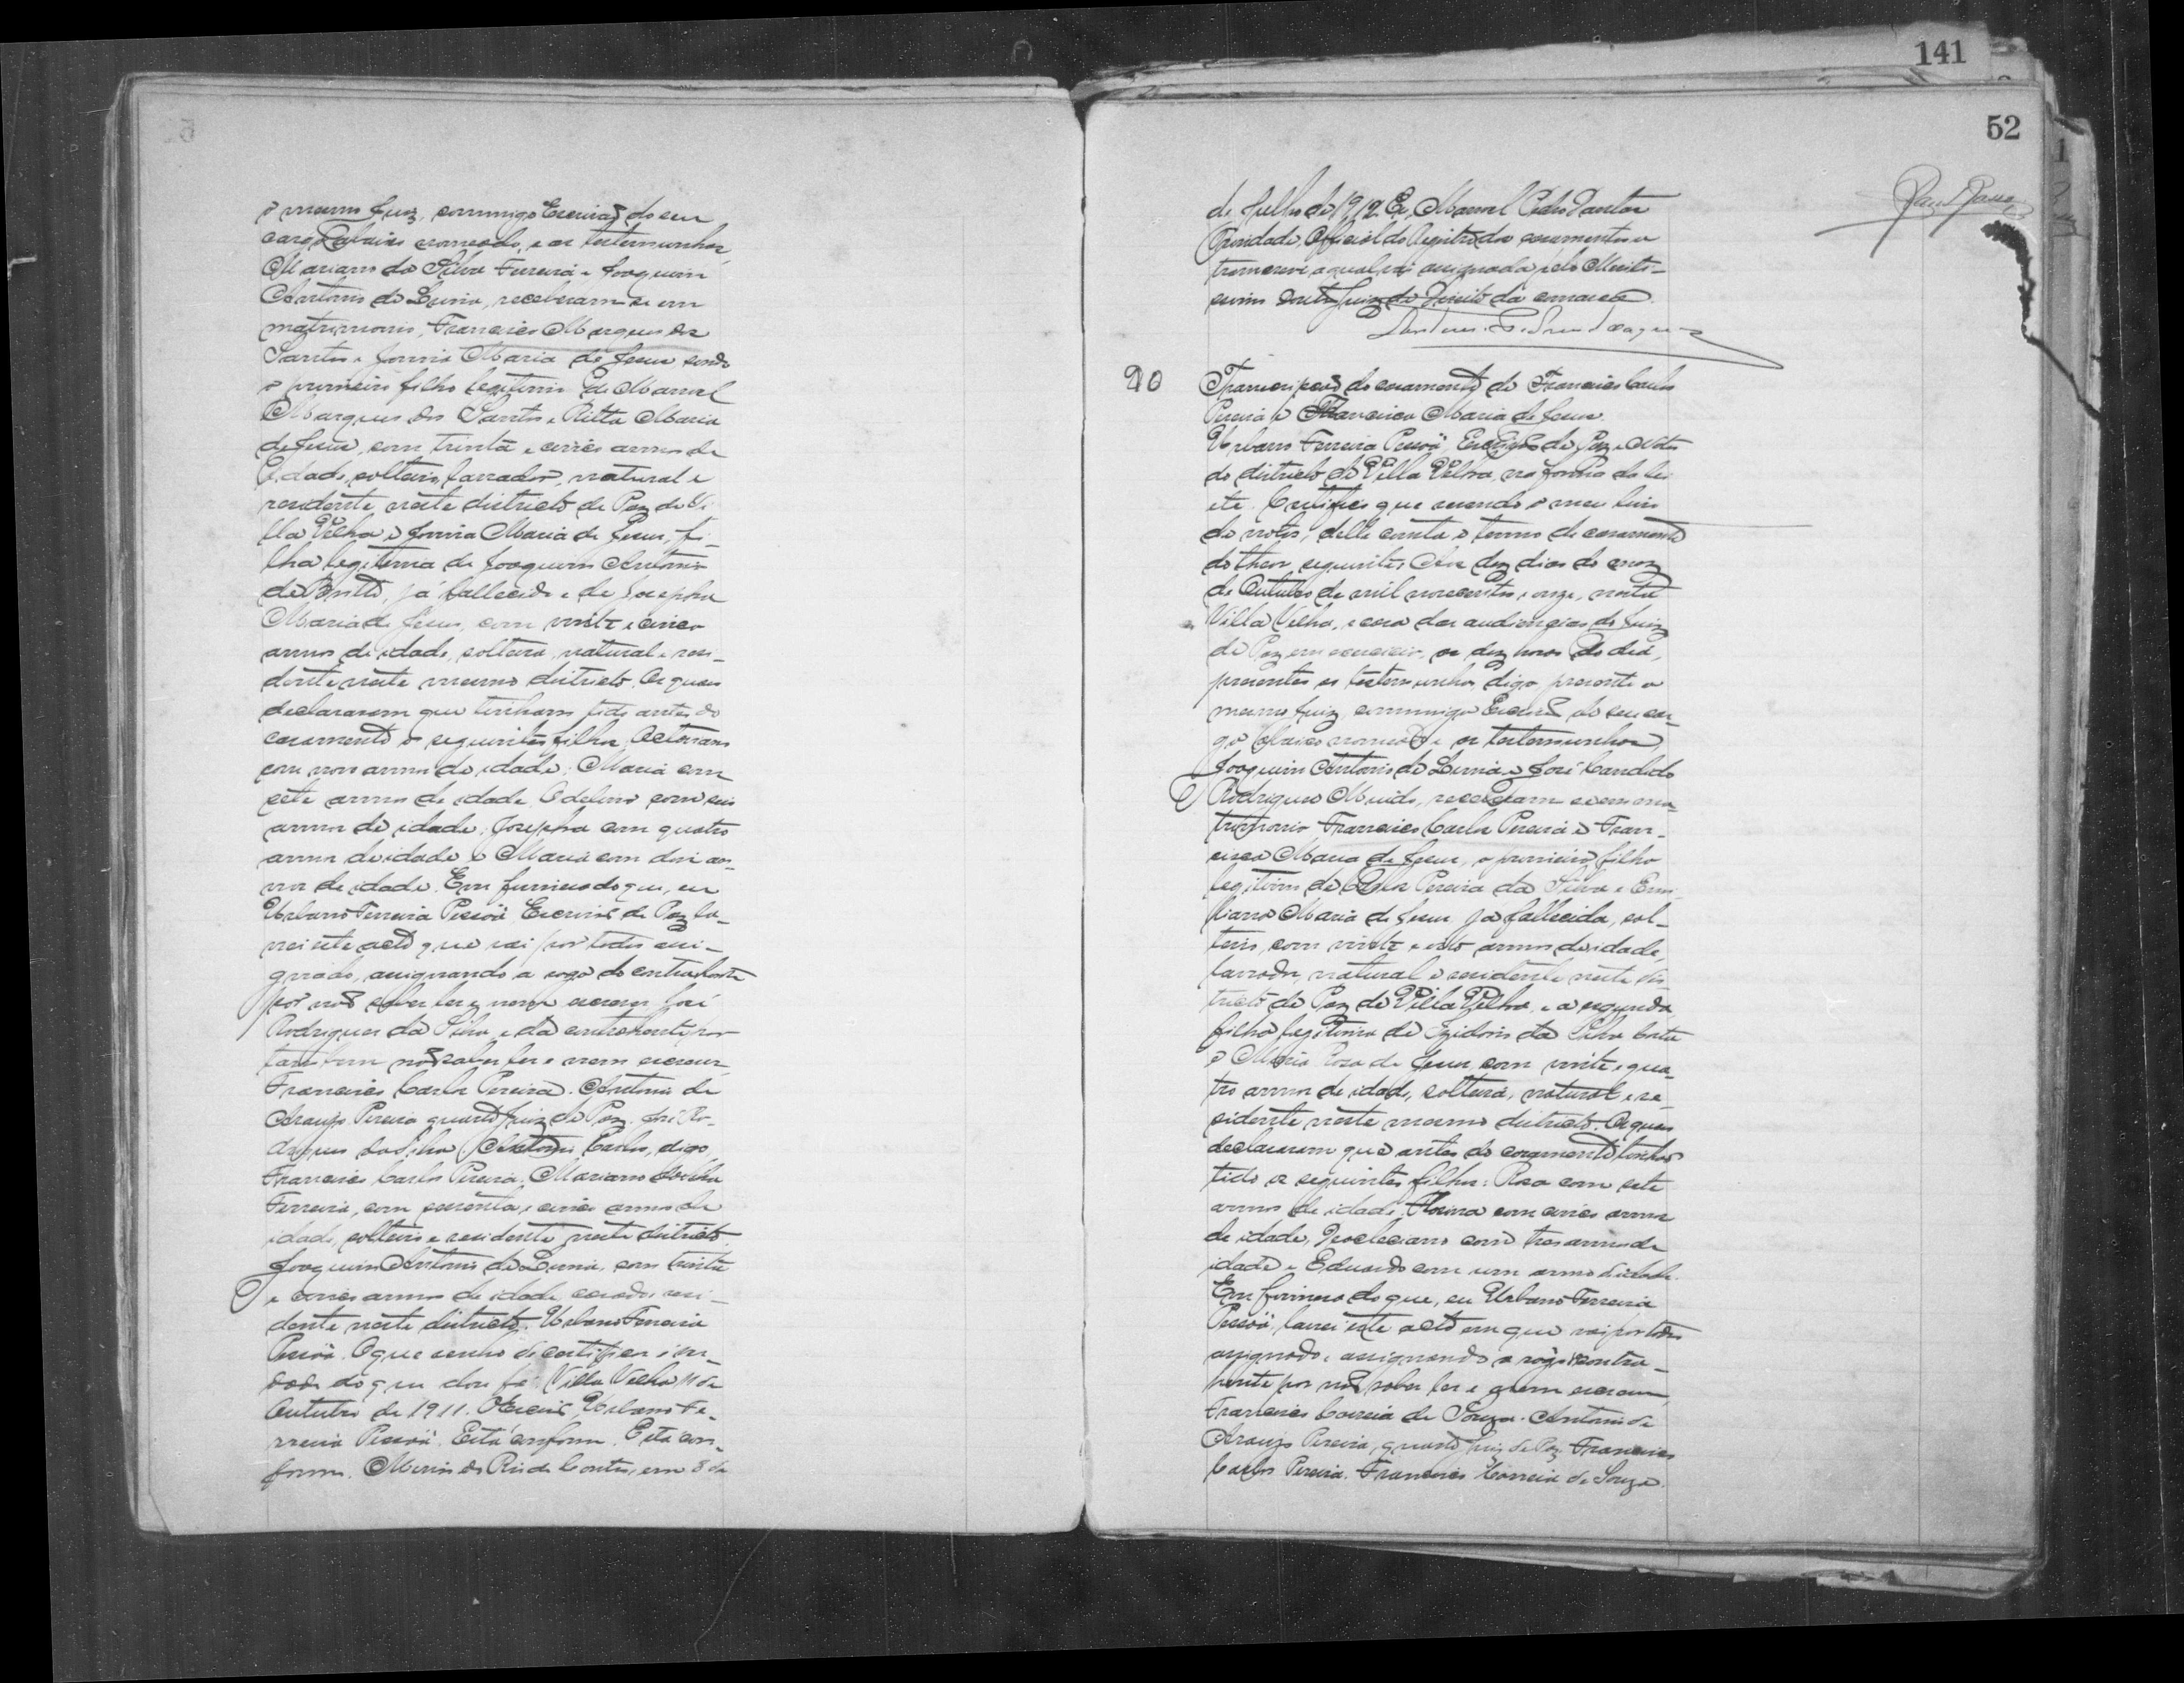 o mesmo Juiz, commigo Escrivão do seu
cargo abaixo nomeado, e as testemunhas
Mariano da Silva Ferreira e Joaquim
Antonio de Lima, receberam-se em
matrimonio, Francisco Marques dos
Santos e Jovina Maria de Jesus sendo
o primeiro filho legitimo de Manoel
Marques dos Santos e Ritta Maria
de Jesus, com trinta e cinco annos de
idade, solteiro, lavrador, natural e
residente neste districto de Paz de Vi-
lla Velha e Jovina Maria de Jesus, fi-
lha legitima de Joaquim Antonio
de Britto, já fallecido e de Josepha
Maria de Jesus, com vinte e cinco
annos de idade, solteira, natural e resi-
dente neste mesmo districto. Os quaes
declararam que tinham tido antes do
casamento os seguintes filhos: Octaviano
com nove annos de idade; Maria com
sete annos de idade, Odelino com seis
annos de idade; Josepha com quatro
annos de idade e Maria com dois an-
nos de idade. Em firmesa do que, eu
Urbano Ferreira Pessôa Escrivão de Paz la-
vrei este acto que vai por todos assi-
gnado, assignando a rogo do contrahente
por não saber ler e nem escrever José
Rodrigues da Silva e da contrahente por
tambem não saber ler e nem escrever
Francisco Carlos Pereira. Antonio de
Araujo Pereira quarto Juiz de Paz. José Ro-
drigues da Silva. Antonio Carlos, digo
Francisco Carlos Pereira. Mariano da Silva
Ferreira, com sessenta e cinco annos de
idade, solteiro e residente neste districto.
Joaquim Antonio de Lima, com trinta
e cinco annos de idade casado, resi-
dente neste districto. Urbano Ferreira
Pessôa. O que venho de certificar é ver-
dade do que dou fé. Villa Velha 11 de
Outubro de 1911. O Escrivão, Urbano Fe-
rreira Pessôa. Está conforme. Está con-
forme. Minas do Rio de Contas, em 8 de
141
52
de Julho de 1912. Eu, Manoel Pedro Dantas
Trindade, Official do Registro dos casamentos a
transcrevi, a qual vai assignada pelo Meriti-
ssimo Doutor Juiz de Direito da comarca.
20
Transcripção do casamento de Francisco Carlos
Pereira e Francisca Maria de Jesus.
Urbano Ferreira Pessôa, Escrivão de Paz e Notas
do districto de Villa Velha, na forma da lei
etc. Certifico que revendo o meu livro
de notas, delle consta o termo de casamento
do theor seguinte: Aos dez dias do mez
de Outubro de mil novecentos e onze, nesta
Villa Velha, e casa das audiencias do Juiz
de Paz em exercicio, as dez horas do dia,
presentes as testemunhas, digo, presente o
mesmo Juiz, commigo Escrivão do seu car-
go abaixo nomeado e as testemunhas
Joaquim Antonio de Lima e José Candido
Rodrigues receberam-se em ma-
trimonio Francisco Carlos Pereira e Fran-
cisca Maria de Jesus, o primeiro filho
legitimo de Carlos Pereira da Silva e
Maria de Jesus, já fallecida, sol-
teiro, com vinte e oito annos de idade,
lavrador, natural e residente neste dis-
tricto de Paz de Villa Velha, e a segunda
filha legitima de Izidoro da Silva
e Maria Rosa de Jesus, com vinte e qua-
tro annos de idade, solteira, natural e re-
sidente neste mesmo districto. Os quaes
declararam que antes do casamento tinham
tido os seguintes filhos: Rosa com sete
annos de idade, com cinco annos
de idade, com tres annos de
idade e Eduardo com um anno de idade.
Em firmesa do que, eu Urbano Ferreira
Pessôa, lavrei este acto em que vai por todos
assignado, assignando a rogo contra-
hente por não saber ler e nem escrever,
Francisco Correia de Souza. Antonio de
Araujo Pereira, quarto Juiz de Paz. Francisco
Carlos Pereira. Francisco Correia de Souza.